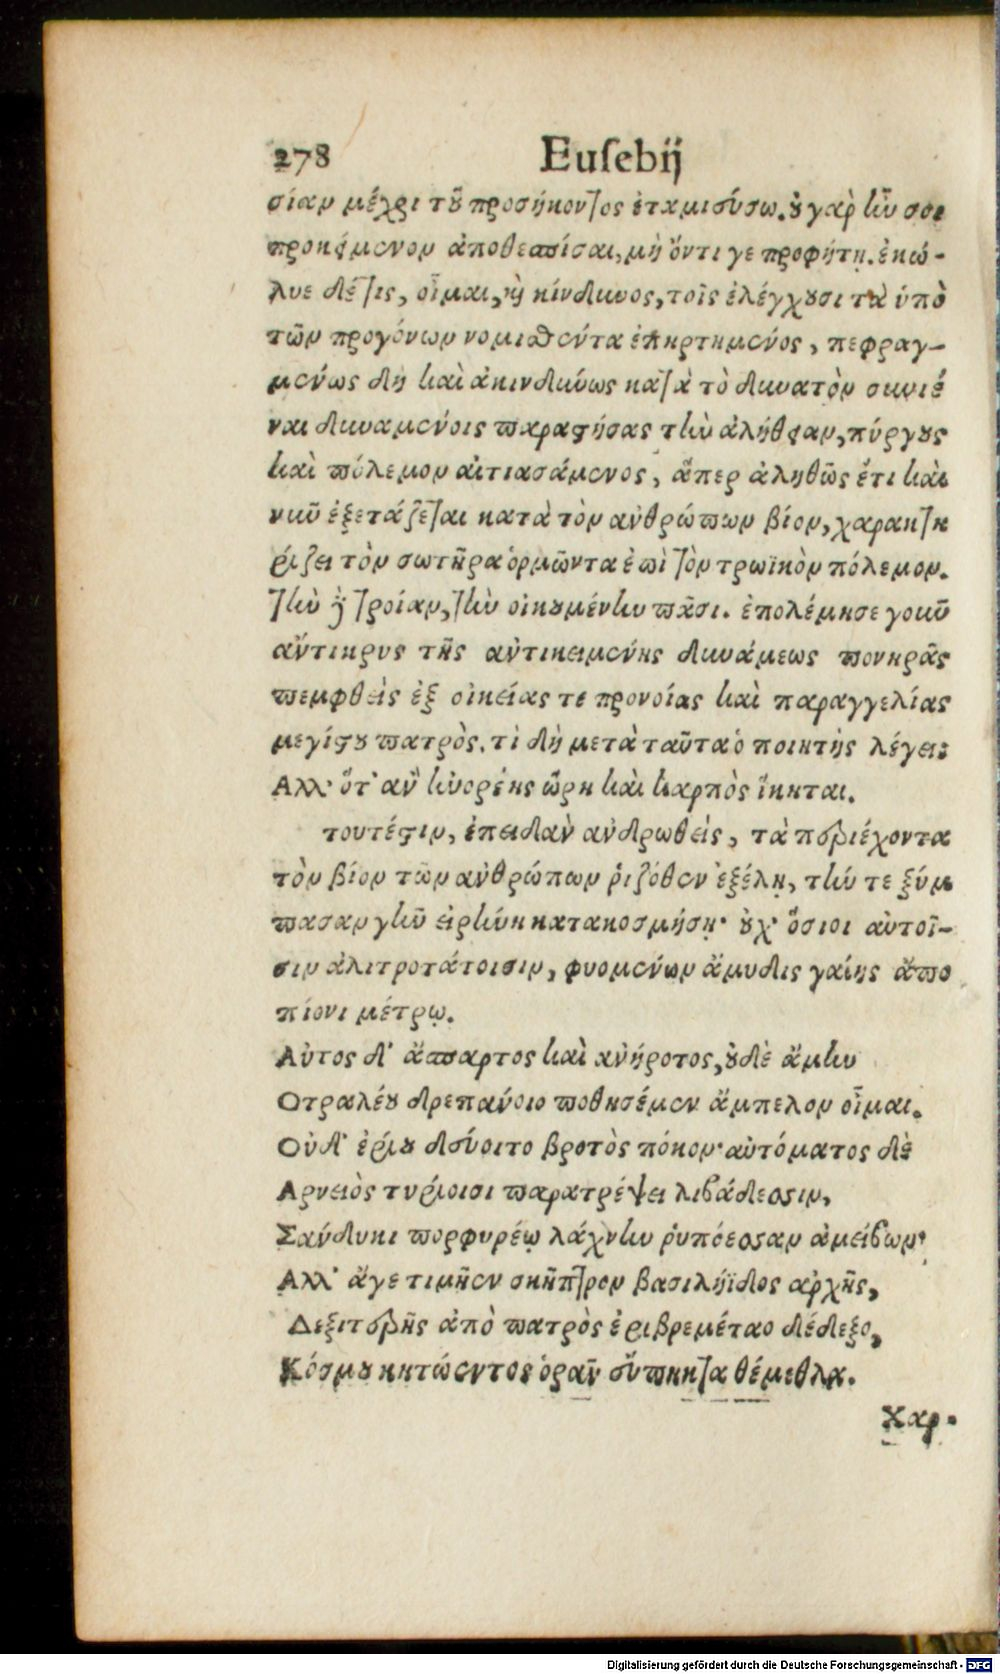 278 Euſebij
σίαν μέχρι τοῦ προσήκοντος ἐταμιεύσω. οὐ γὰρ ἦν σοι
προκείμενον ἀποθεσπίσαι, μὴ ὄντι γε προφήτῃ. ἐκώ-
λυε δέ τις, οἶμαι, καὶ κίνδυνος, τοῖς ἐλέγχουσι τὰ ὑπὸ
τῶν προγόνων νομισθέντα ἐπηρτημένος, πεφραγ-
μένως δὴ καὶ ἀκινδύνως κατὰ τὸ δυνατὸν συνιέ
ναι δυναμένοις παραστήσας τὴν ἀλήθειαν, πύργους
καὶ πόλεμον αἰτιασάμενος, ἅπερ ἀληθῶς ἔτι καὶ
νῦν ἐξετάζεται κατὰ τὸν ἀνθρώπων βίον, χαρακτη
ρίζει τὸν σωτῆρα ὁρμῶντα ἐπὶ τὸν τρωϊκὸν πόλεμον.
τὴν δὲ τροίαν, τὴν οἰκουμένην πᾶσι. ἐπολέμησε γοῦν
αὔτικρυς τῆς αὐτικειμένης δυνάμεως πονηρᾶς
πεμφθεὶς ἐξ οἰκείας τε προνοίας καὶ παραγγελίας
μεγίστου πατρὸς. τί δὴ μετὰ ταῦτα ὁ ποιητὴς λέγει;
Αλλ' ὅτ' ἀν ἠνορέης ὥρη καὶ καρπὸς ἵκηται.
τουτέστιν, ἐπειδὰν ἀνδρωθεὶς, τὰ περιέχοντα
τὸν βίον τῶν ἀνθρώπων ῥιζόθεν ἐξέλῃ, τήν τε ξύμ
πασαν γῆν εἰρήνη κατακοσμήσῃ· οὐχ' ὅσιοι αὐτοῖ-
σιν ἀλιτροτάτοισιν, φυομένων ἄμυδις γαίης ἄπο
πίονι μέτρῳ.
Αὐτος δ' ἄσπαρτος καὶ ἀνήροτος, οὐδὲ ἄμην
Οτραλέου δρεπάνοιο ποθησέμεν ἄμπελον οἶμαι.
Οὐδ' ἐρίου δεύοιτο βροτὸς πόκον· αὐτόματος δὲ
Αρνειὸς τυρίοισι παρατρέψει λιβάδεοσιν,
Σάνδυκι πορφυρέῳ λάχνην ῥυπόεοσαν ἀμείβων·
Αλλ' ἄγε τιμῆεν σκῆπτρον βασιληΐδος ἀρχῆς,
Δεξιτερῆς ἀπὸ πατρὸς ἐριβρεμέταο δέδεξο,
Κόσμου κητώεντος ὁρᾶν εὔπηκτα θέμεθλα.
Χαρ-
Digitalisierung gefördert durch die Deutsche Forschungsgemeinschaft - DFG